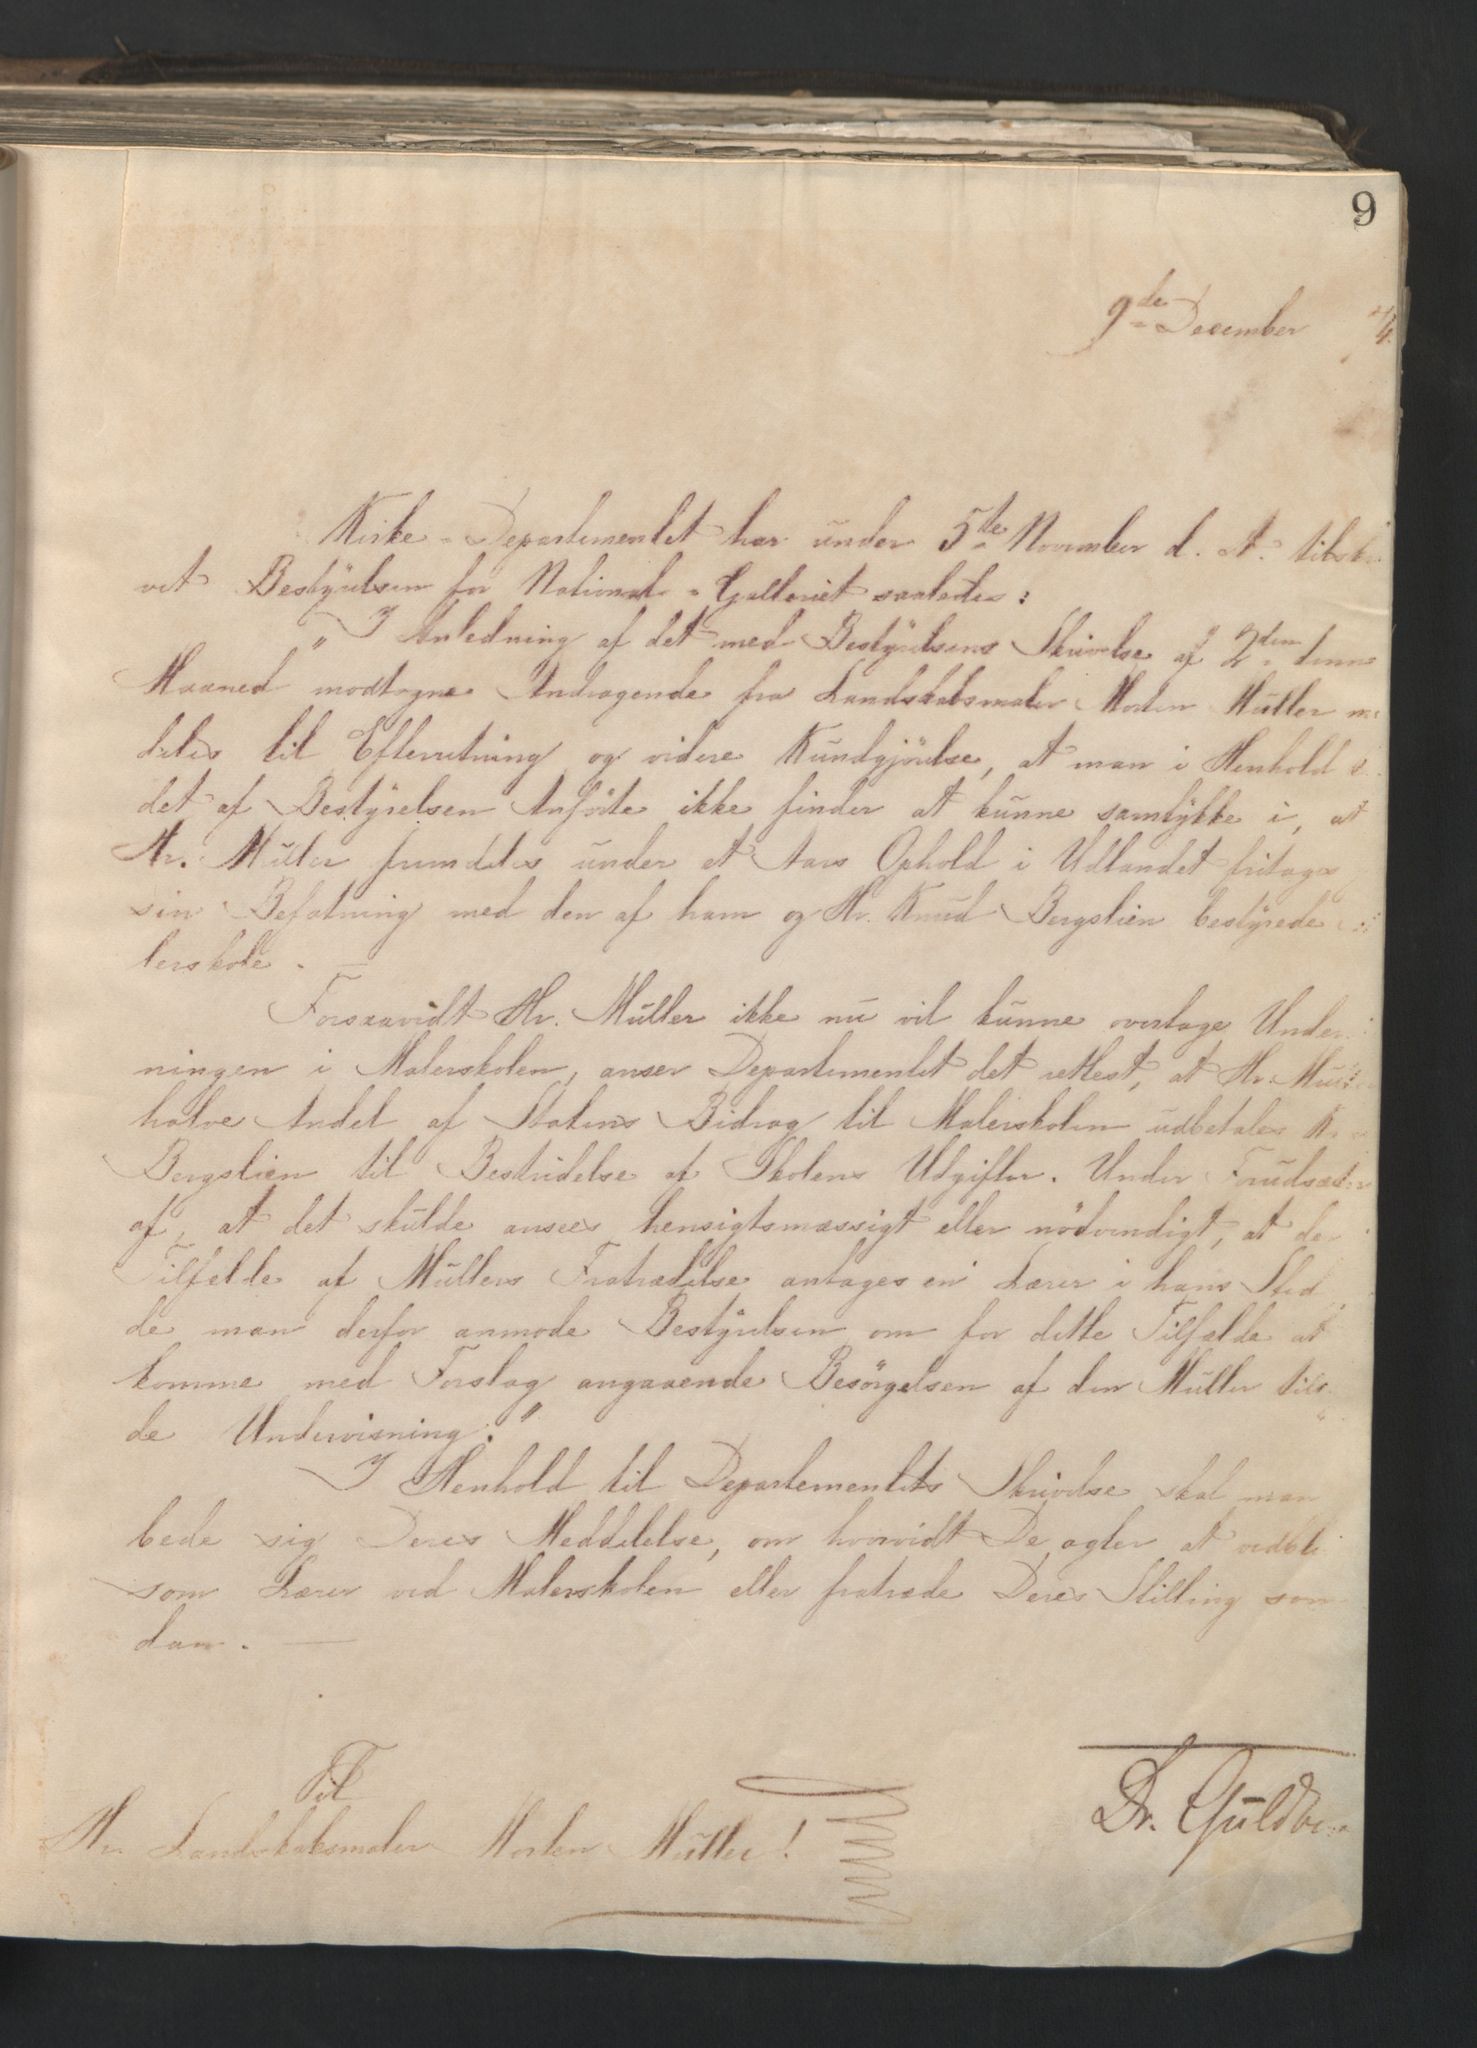 9
9de December 74.
Kirke-Departementet har under 5te November d. A. tilskre
vet Bestyrelsen for National-Galleriet saaledes:
"I Anledning af det med Bestyrelsens Skrivelse af 2den denne
Maaned modtagne Andragende fra Landskabsmaler Morten Müller
deles til Efterretning og videre Kundgjörelse, at man i Henhold
det af Bestyrelsen Anförte ikke finder at kunne samtykke i, at
Hr. Müller fremdeles under et Aars Ophold i Udlandet fritages
sin Befatning med den af ham og Hr. Knud Bergslien bestyrede
lerskole. —
Forsaavidt Hr. Müller ikke nu vil kunne overtage Under
ningen i Malerskolen, anser Departementet det rettest, at Hr. Müller
halve Andel af Statens Bidrag til Malerskolen udbetales Hr.
Bergslien til Bestridelse af Skolens Udgifter. Under Forudsætn
af, at det skulde ansees hensigtsmæssigt eller nödvendigt, at der
Tilfelde af Müllers Fratrædelse antages en Lærer i hans Sted
de man derfor anmode Bestyrelsen om for dette Tilfælde at
komme med Forslag angaaende Besörgelsen af den Müller
de Undervisning."
I Henhold til Departementets Skrivelse skal man
bede sig Deres Meddelelse, om hvorvidt De agter at vedbli
som Lærer ved Malerskolen eller fratræde Deres Stilling som
dan. —
Til
Hr. Landskabsmaler Morten Müller!
Dr. Guldbe